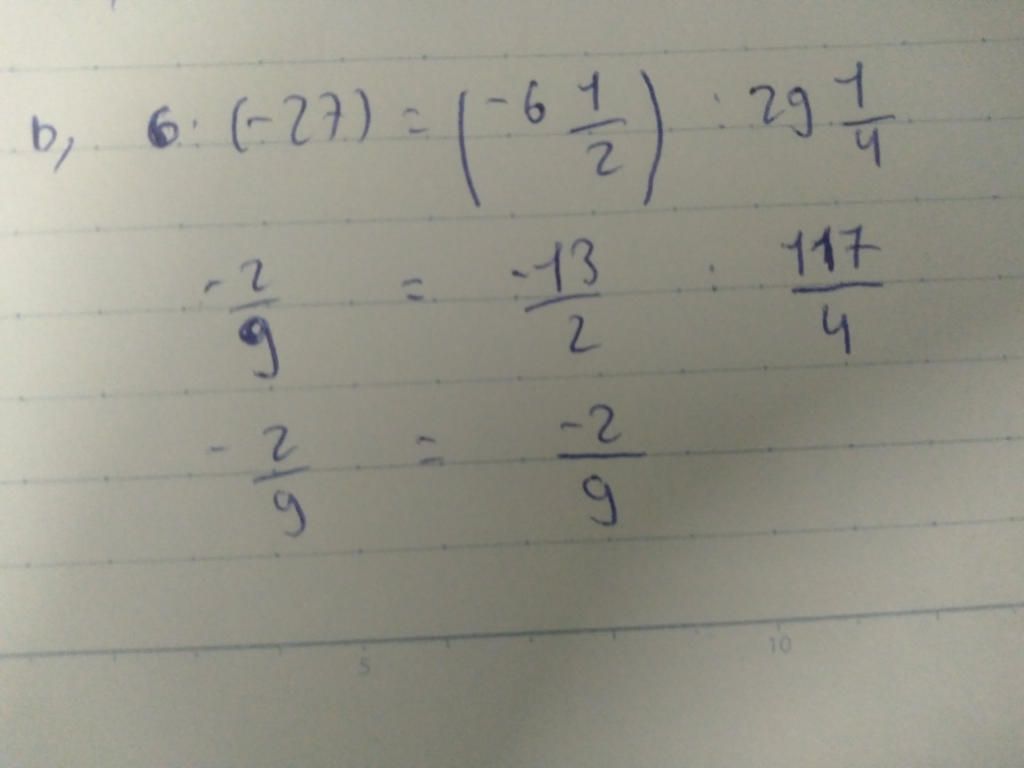 b, 6 : (-27) = (-6 1/2) : 29 1/4
-2/9 = -13/2 : 117/4
-2/9 = -2/9
5 10